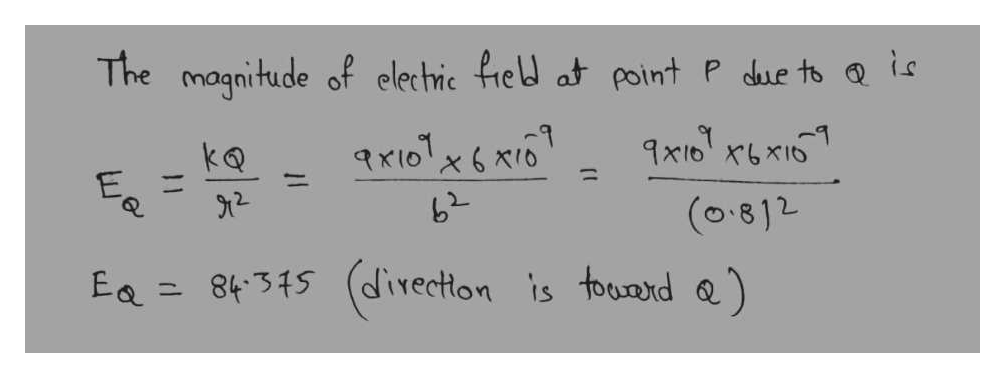 The magnitude of electric field at point P due to Q is
E_Q = kQ/r² = 9×10⁹ × 6×10⁻⁹/b² = 9×10⁹ × 6×10⁻⁹/(0.8)²
E_Q = 84.375 (direction is toward Q)